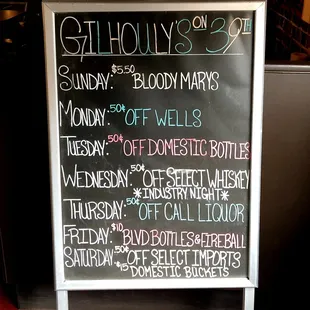 GILHOULY'S ON 39TH
SUNDAY: $5.50 BLOODY MARYS
MONDAY: 50¢ OFF WELLS
TUESDAY: 50¢ OFF DOMESTIC BOTTLES
WEDNESDAY: 50¢ OFF SELECT WHISKEY
*INDUSTRY NIGHT*
THURSDAY: 50¢ OFF CALL LIQUOR
FRIDAY: $10 BLVD BOTTLES & FIREBALL
SATURDAY: 50¢ OFF SELECT IMPORTS
$15 DOMESTIC BUCKETS